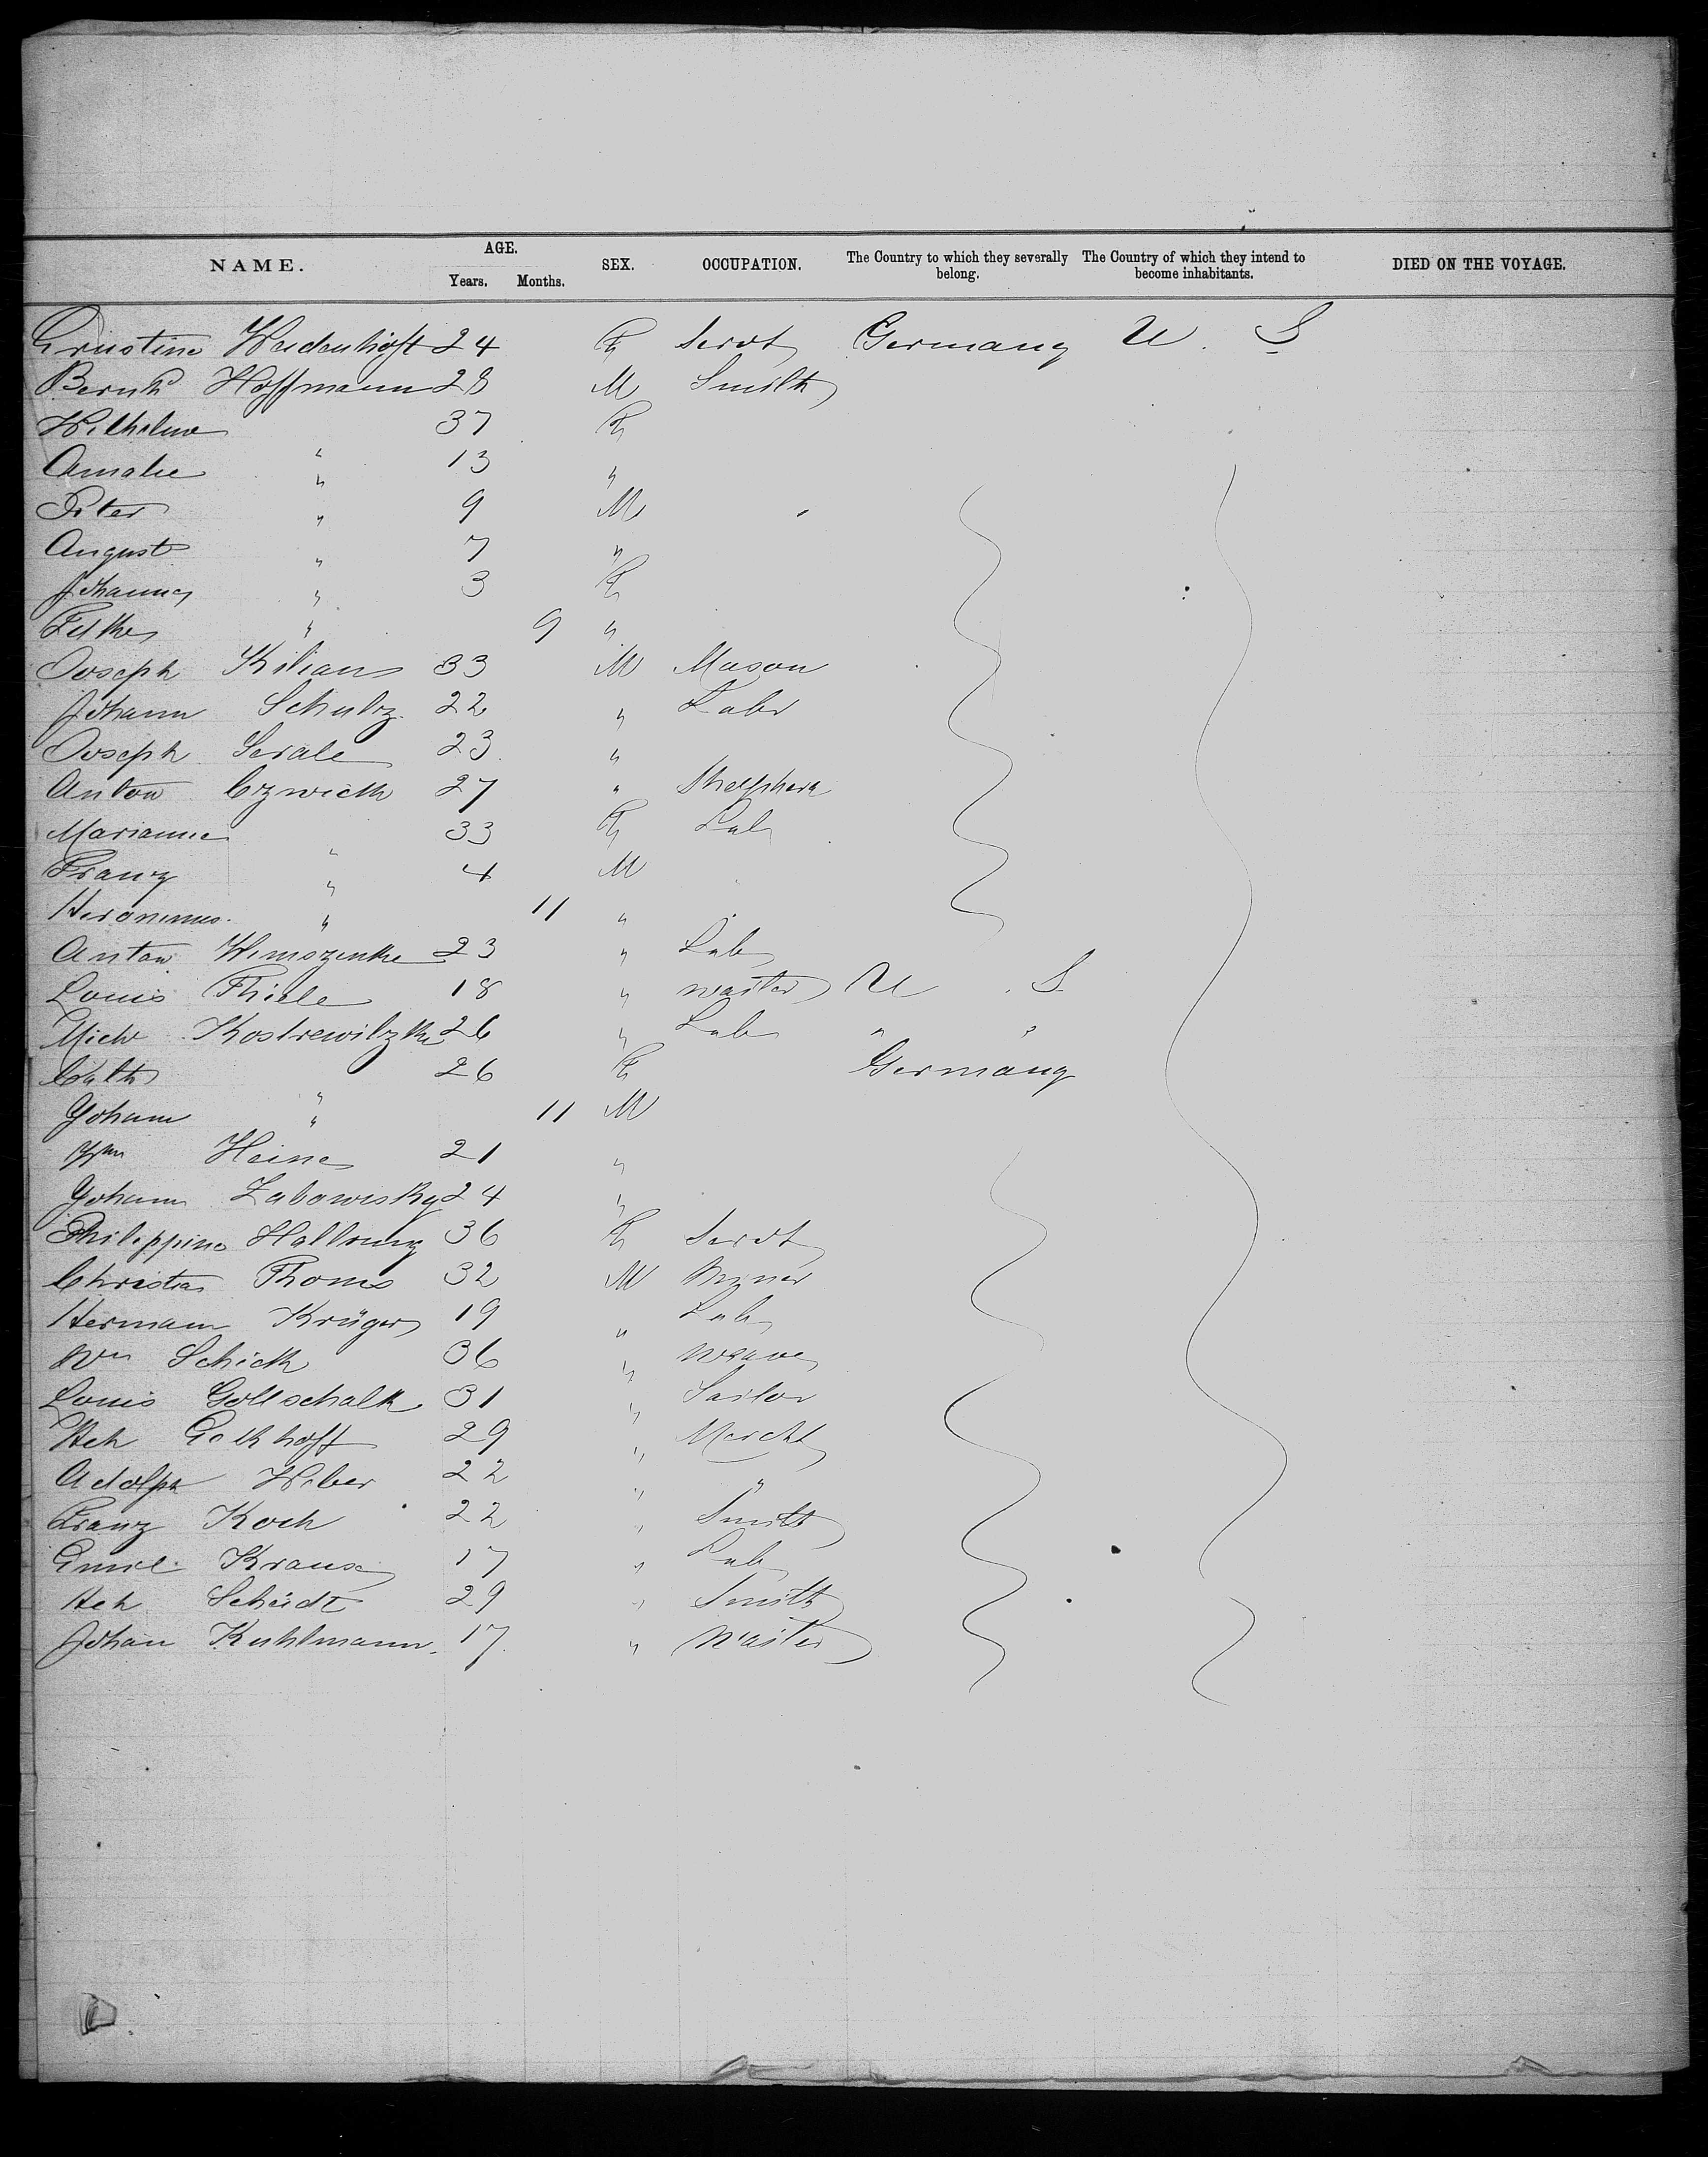 NAME. AGE. Years. Months. SEX. OCCUPATION. The Country to which they severally belong. The Country of which they intend to become inhabitants. DIED ON THE VOYAGE.
Ernstine Weidenhöft 24 F Servt Germany U. S
Bernhd Hoffmann 28 M Smith
Wilhelme " 37 F
Amalie " 13 "
Peter " 9 M
August " 7 "
Johanna " 3 F
" 9 "
Joseph Kilian 33 M Mason
Johann Schulz 22 " Labr
Joseph 23 "
Anton 27 " Shephera
Marianne " 33 F Lab
Franz " 4 M
Heronimus " 11 "
Anton 23 " Lab
Louis Thiele 18 " waiter U . S.
Mich Kostrewitzki 26 " Lab " "
Cath " 26 F Germany
Johann " 11 M
Wm Heine 21 "
Johann Zabowisky 24 "
Philippine Hallrung 36 F Servt
Christian Thoms 32 M Miner
Hermann Krüger 19 " Lab
Wm Schick 36 " Weaver
Louis Gottschalk 31 " Sailor
Hch 29 " Mercht
Adolph Weber 22 " "
Franz Koch 22 " Smith
Emil Krause 17 " Lab
Hch 29 " Smith
Johan Kuhlmann. 17 " Waiter